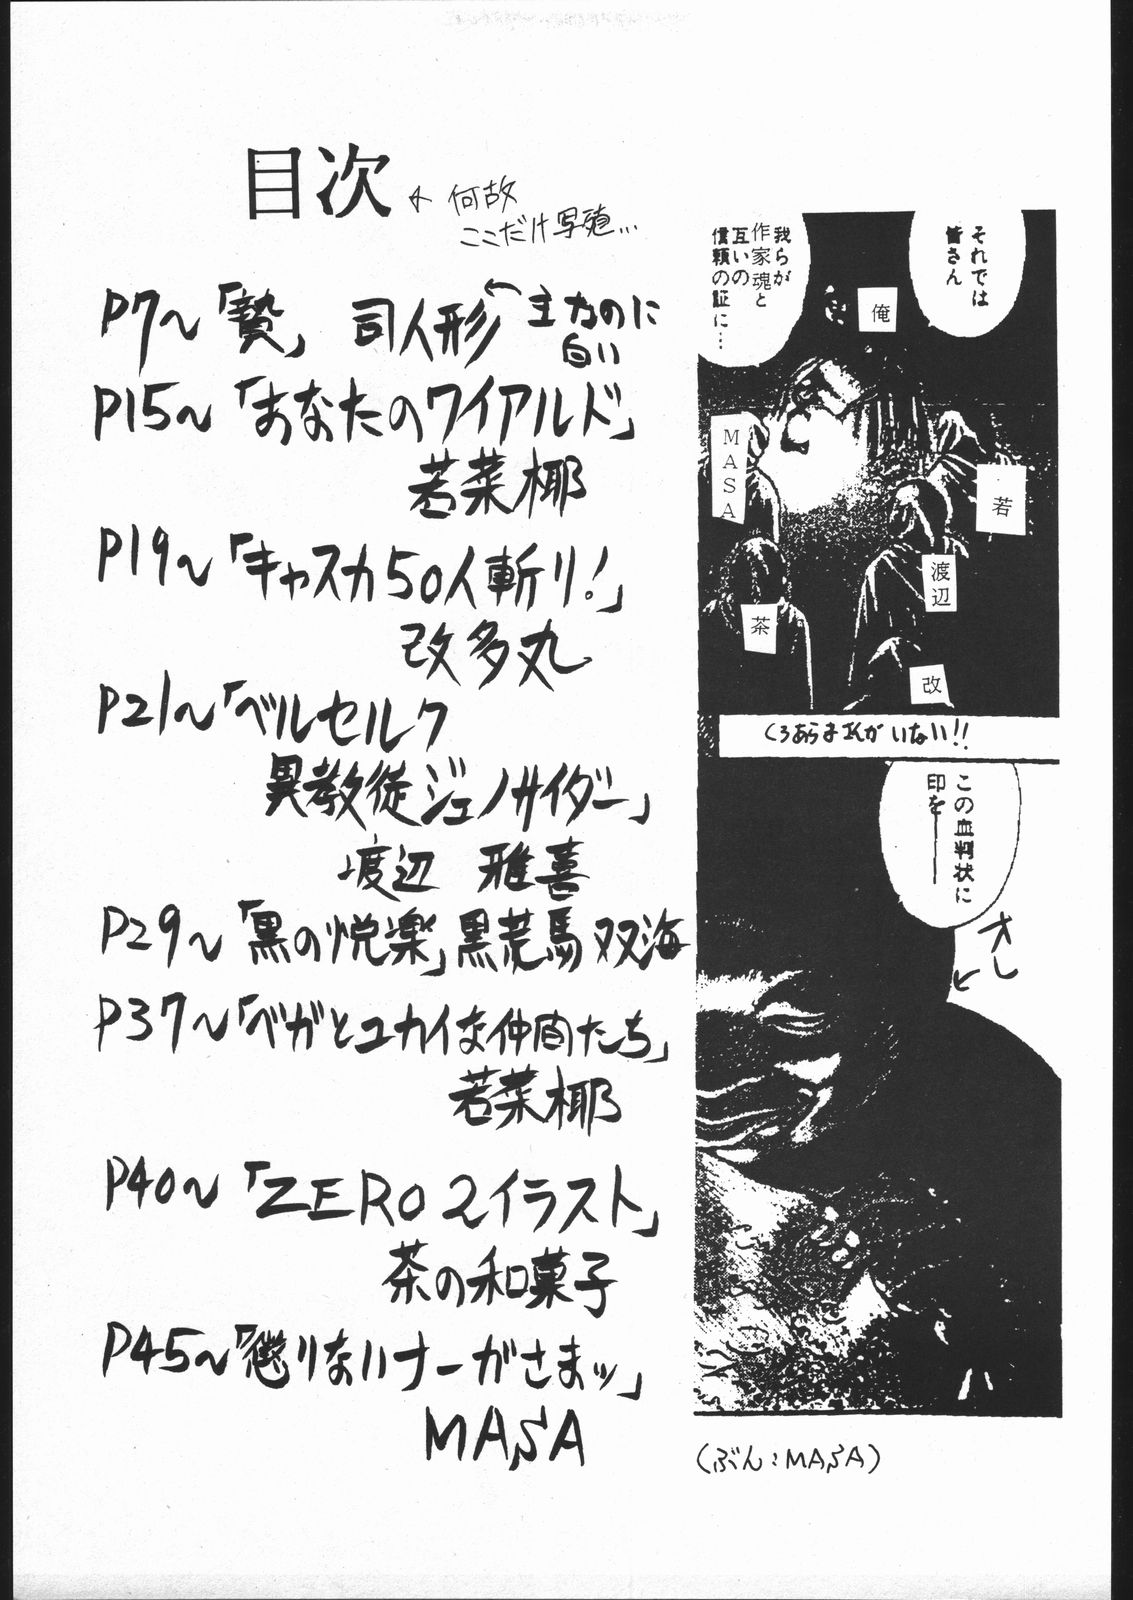 目次 ← 何故
ここだけ写植…
P7～「贄」 司人形 ← 主なのに
白い
P15～「あなたのワイアルド」
若菜椰
P19～「キャスカ50人斬り！」
改多丸
P21～「ベルセルク
異教徒ジェノサイダー」
渡辺 雅喜
P29～「黒の悦楽」黒荒馬 双海
P37～「ベガとユカイな仲間たち」
若菜椰
P40～「ZERO2イラスト」
茶の和菓子
P45～「懲りないナーガさまッ」
MASA
それでは
皆さん
我らが
作家魂と
互いの
信頼の証に…
俺
MASA
若
渡辺
茶
改
くろあらまさんがいない!!
この血判状に
印を──
オレ
（ぶん：MASA）